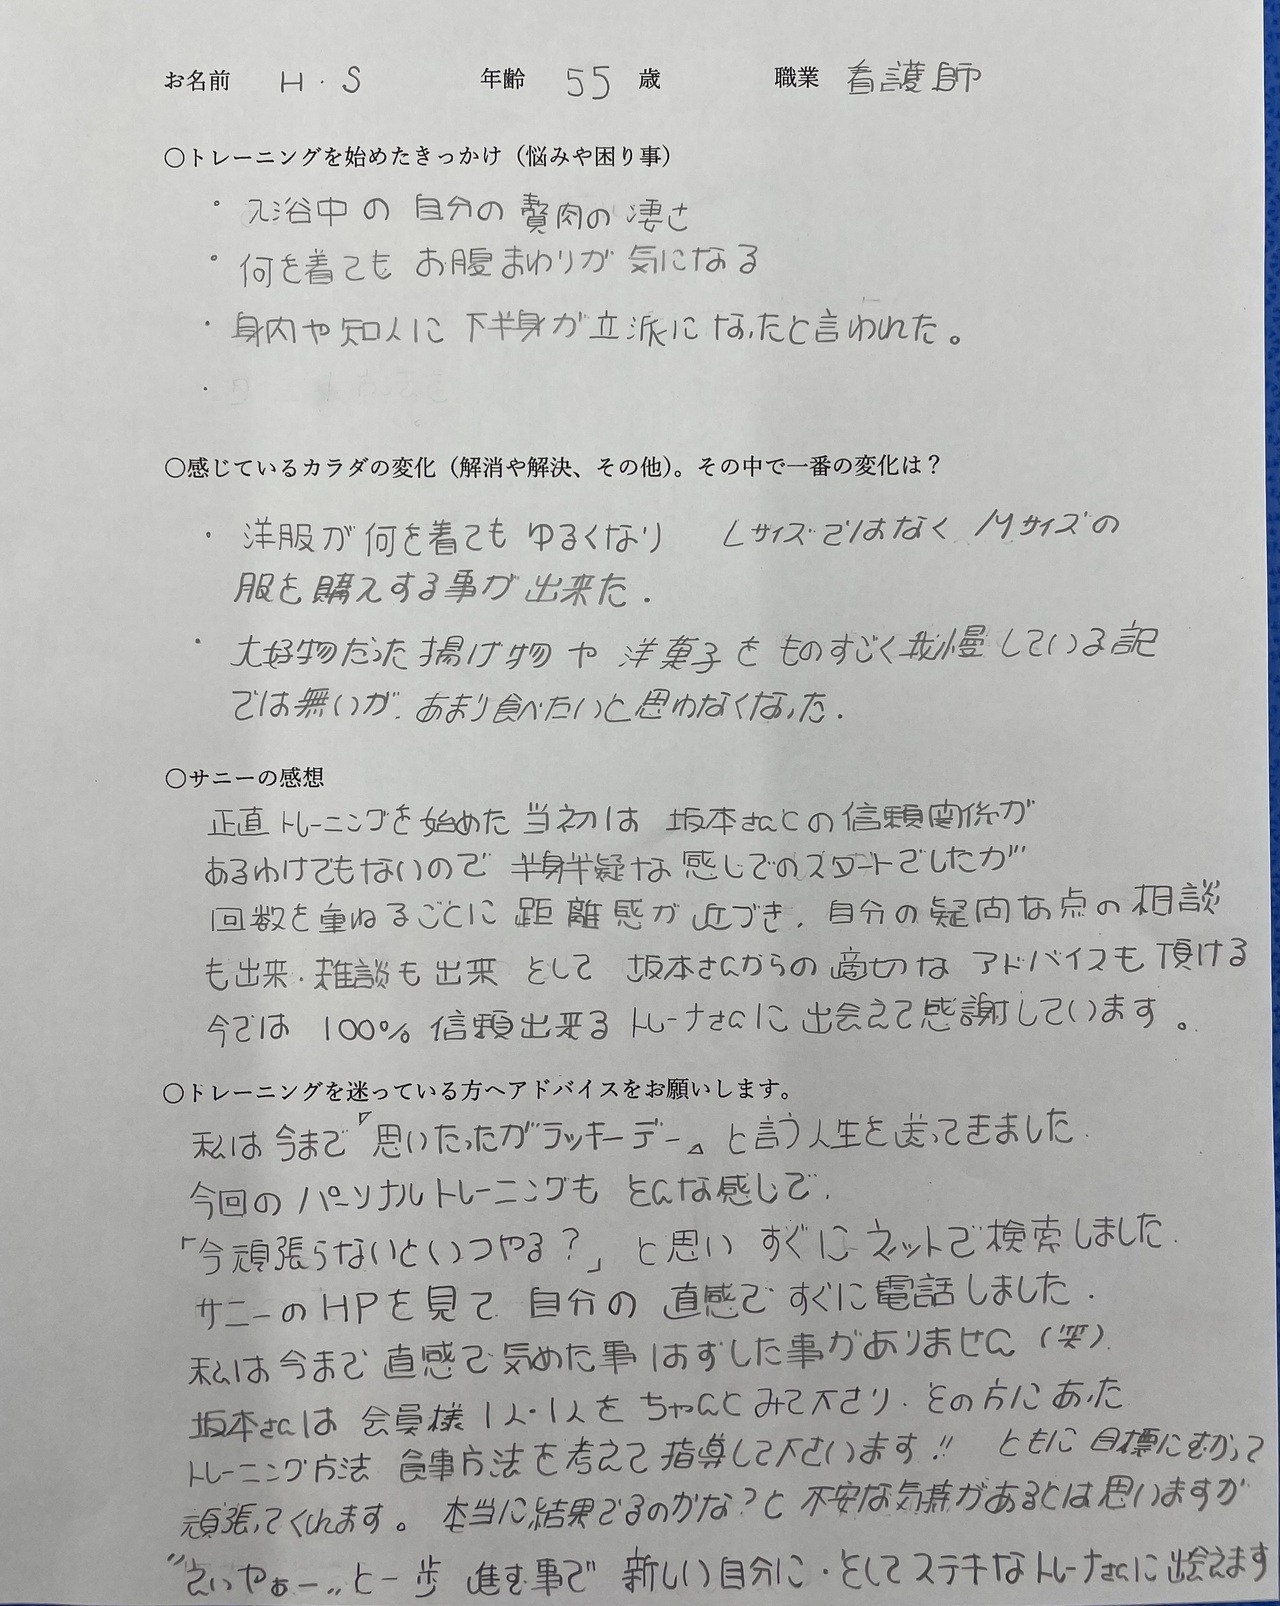 お名前 H・S 年齢 55 歳 職業 看護師
〇トレーニングを始めたきっかけ（悩みや困り事）
・入浴中の自分の贅肉の凄さ
・何を着てもお腹まわりが気になる
・身内や知人に下半身が立派になったと言われた。
・
〇感じているカラダの変化（解消や解決、その他）。その中で一番の変化は？
・洋服が何を着てもゆるくなり Lサイズではなく Mサイズの
服を購入する事が出来た.
・大好物だった揚げ物や洋菓子をものすごく我慢している記
では無いが、あまり食べたいと思わなくなった.
〇サニーの感想
正直トレーニングを始めた当初は 坂本さんとの信頼関係が
あるわけでもないので 半身半疑な感じでのスタートでしたが
回数を重ねるごとに距離感が近づき、自分の疑問な点の相談
も出来、雑談も出来 そして 坂本さんからの適切な アドバイスも頂ける
今では 100% 信頼出来るトレーナさんに出会えて感謝しています。
〇トレーニングを迷っている方へアドバイスをお願いします。
私は今まで『思いたったがラッキーデー』と言う人生を送ってきました.
今回のパーソナルトレーニングも そんな感じで、
「今頑張らないといつやる？」と思い すぐにネットで検索しました.
サニーのHPを見て 自分の直感ですぐに電話しました.
私は今まで直感で気めた事はずした事がありません（笑）.
坂本さんは 会員様1人・1人をちゃんとみて下さり、その方にあった
トレーニング方法 食事方法を考えて指導して下さいます!! ともに目標にむかって
頑張ってくれます。本当に結果でるのかな？と不安な気持があるとは思いますが
〃えいやぁー〃と一歩 進む事で 新しい自分に・そしてステキなトレーナさんに出会えます